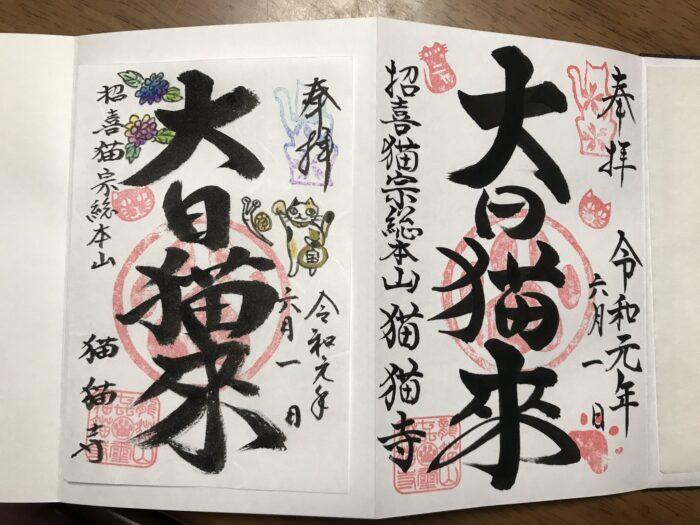 奉拝
大日猫来
令和元年
六月一日
招喜猫宗総本山
猫猫寺
奉拝
大日猫來
令和元年
六月一日
招喜猫宗総本山 猫猫寺